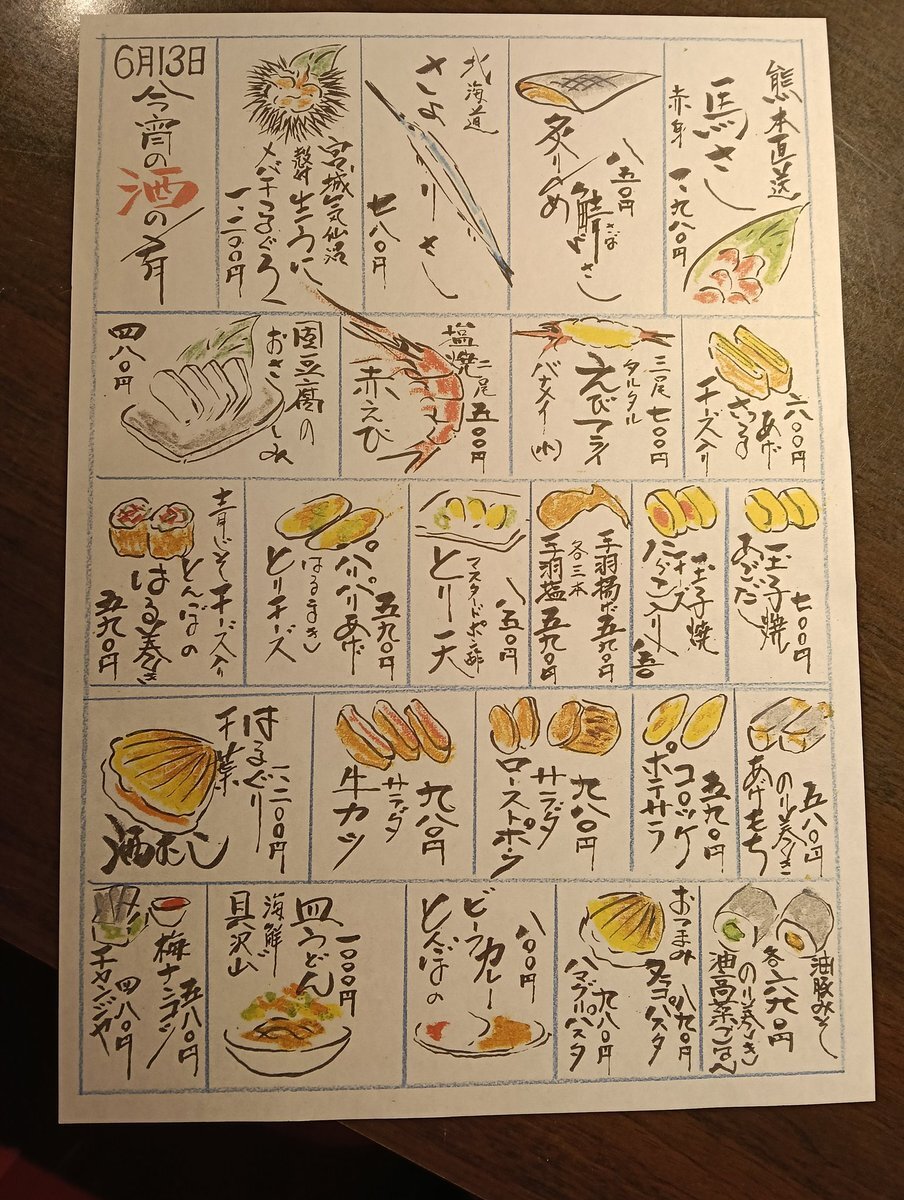 6月13日
今宵の酒の肴
熊本直送
馬さし
赤身
一、九八〇円
八五〇円
炙りしめ
鯖さし
さば
北海道
さよりさし
七八〇円
宮城気仙沼
生うに
メバチまぐろ
一、二〇〇円
六〇〇円
あげ
チーズ入り
三尾 七〇〇円
タルタル
えびフライ
バナメイ
塩焼
二尾 五〇〇円
赤えび
固豆腐の
おさしみ
四八〇円
七〇〇円
玉子焼
あごだし
玉子焼
チーズ
手羽塩
各三本
五九〇円
五九〇円
八五〇円
マスタードポン酢
とり天
五九〇円
パリパリあげ
はるまき
とりチーズ
青じそチーズ入り
とんぼの
はる巻き
五九〇円
五八〇円
のり巻き
あげもち
五九〇円
コロッケ
ポテサラ
九八〇円
サラダ
ローストポーク
九八〇円
サラダ
牛カツ
はまぐり
千葉
一、二〇〇円
酒むし
油豚みそ
各六九〇円
のり巻き
油高菜ごはん
おつまみ
タコパスタ
八九〇円
ハマグリパスタ
九八〇円
八〇〇円
ビーフカレー
とんぼの
一〇〇〇円
皿うどん
海鮮
具沢山
五八〇円
梅ナンコツ
チャンジャ
四八〇円